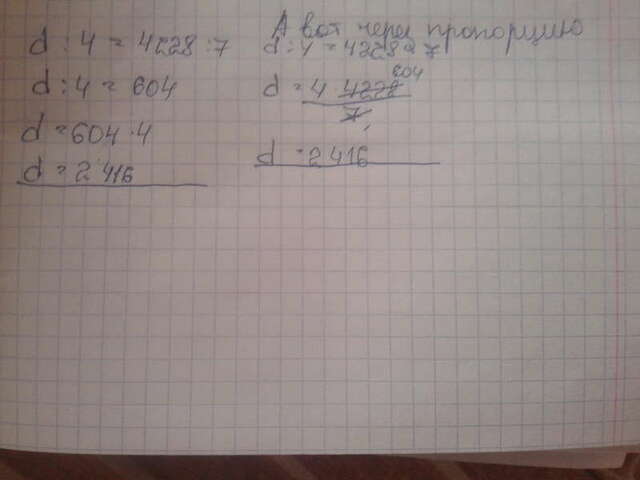 d : 4 = 4228 : 7
d : 4 = 604
d = 604 · 4
d = 2416
А вот через пропорцию
d : 4 = 4228 : 7
d = 4 · 4228 604
7
d = 2416